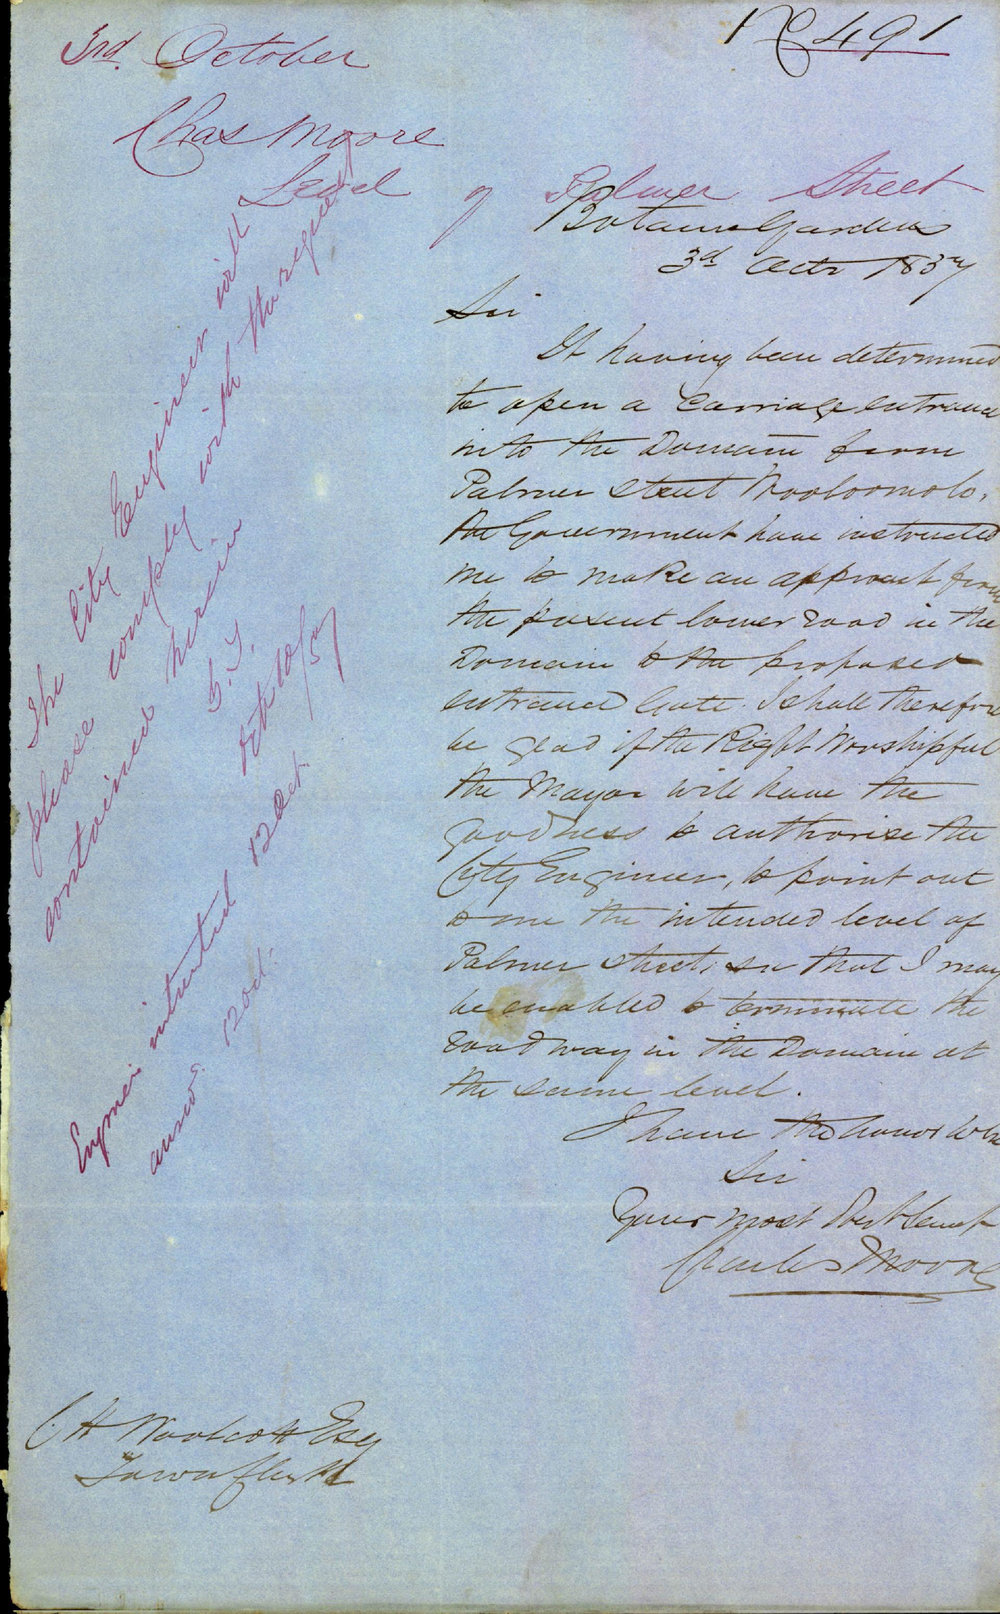 No 491
3rd. October
Chas Moore
Level of Palmer Street
Botanic Gardens
3d Octr 1857
Sir
It having been determined
to open a Carriage entrance
into the Domain from
Palmer Street Wooloomolo,
the Government have instructed
me to make an approach from
the present lower road in the
Domain to the proposed
entrance Gate. I shall therefore
be glad if the Right Worshipful
the Mayor will have the
goodness to authorise the
City Engineer, to point out
to me the intended level of
Palmer Street, so that I may
be enabled to terminate the
road way in the Domain at
the same level.
I have the honor to be
Sir
Your most Obdt Servt
Charles Moore
C H Woolcott Esq
Town Clerk
The City Engineer will
please comply with the request
contained herein
G. T.
Oct 10/57
Engineer instructed 12 Oct.
answd. 12 Oct.